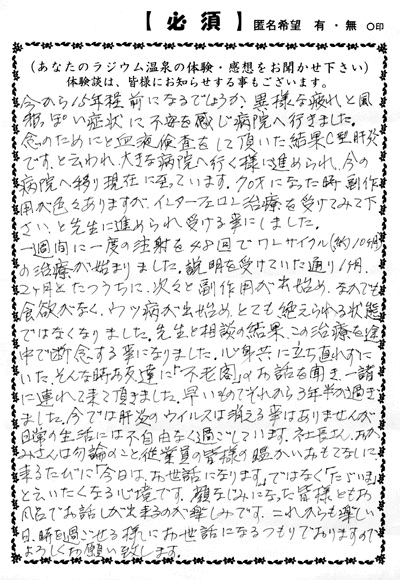 【必須】 匿名希望 有・無 ○印
(あなたのラジウム温泉の体験・感想をお聞かせ下さい)
体験談は、皆様にお知らせする事もございます。
今から15年程前になるでしょうか、異様な疲れと風
邪っぽい症状に不安を感じ病院へ行きました。
念のためにと血液検査をして頂いた結果C型肝炎
です、と云われ、大きな病院へ行く様に進められ、今の
病院へ移り現在に至っています。70才になった時副作
用が色々ありますが、インターフェロン治療を受けてみて下
さい、と先生に進められ受ける事にしました。
一週間に一度の注射を48回で1サイクル(約10ヶ月)
の治療が始まりました。説明を受けていた通り1ヶ月、
2ヶ月とたつうちに、次々と副作用が出始め、なかでも
食欲がなく、ウツ病が出始め、とても絶えられる状態
ではなくなりました。先生と相談の結果、この治療を途
中で断念する事になりました。心身共に立ち直れずに
いた、そんな時お友達に「不老閣」のお話を聞き、一諸
に連れて来て頂きました。早いものでそれから3年半が過ぎ
ました。今では肝炎のウイルスは消える事はありませんが
日常の生活には不自由なく過ごしています。社長さん、おか
みさんは勿論のこと従業員の皆様の暖かいおもてなしに
来るたびに「今日は、お世話になります。」ではなく「ただいま」
と云いたくなる心境です。顔なじみになった皆様ともお
風呂でお話しが出来るのが楽しみです。これからも楽しい
日、時を過ごせる様にお世話になるつもりでありますので
よろしくお願い致します。